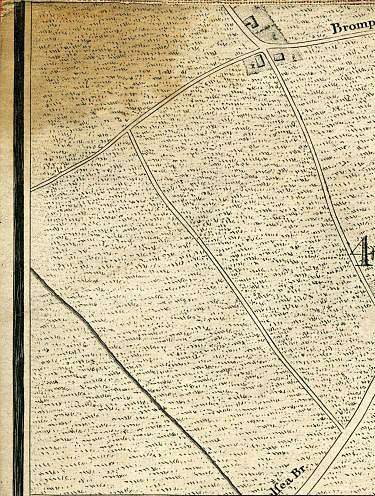 Bromp
4
lsea Br.